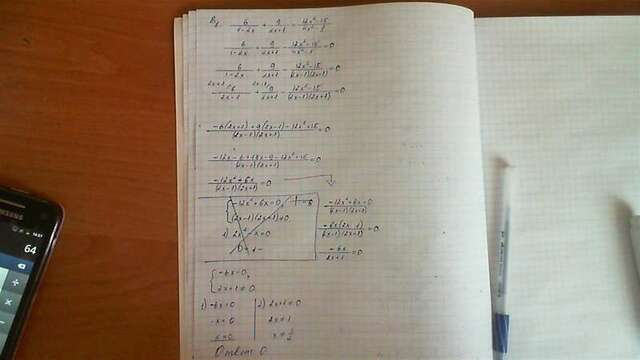 6/(1-2x) + 9/(2x+1) = (12x²-15)/(4x²-1)
6/(1-2x) + 9/(2x+1) - (12x²-15)/(4x²-1) = 0
6/(1-2x) + 9/(2x+1) - (12x²-15)/((2x-1)(2x+1)) = 0
-6/(2x-1) + 9/(2x+1) - (12x²-15)/((2x-1)(2x+1)) = 0
(-6(2x+1)+9(2x-1)-12x²+15)/((2x-1)(2x+1)) = 0
(-12x-6+18x-9-12x²+15)/((2x-1)(2x+1)) = 0
(-12x²+6x)/((2x-1)(2x+1)) = 0
-12x²+6x=0,
(2x-1)(2x+1)≠0
1) 2x²-x=0
(-12x²+6x=0)/((2x-1)(2x+1))
(-6x(2x-1))/((2x-1)(2x+1)) = 0
-6x/(2x+1) = 0
-6x=0,
2x+1≠0
1) -6x=0
x=0
2) 2x+1≠0
Ответ: 0
SAMSUNG
64
÷
×